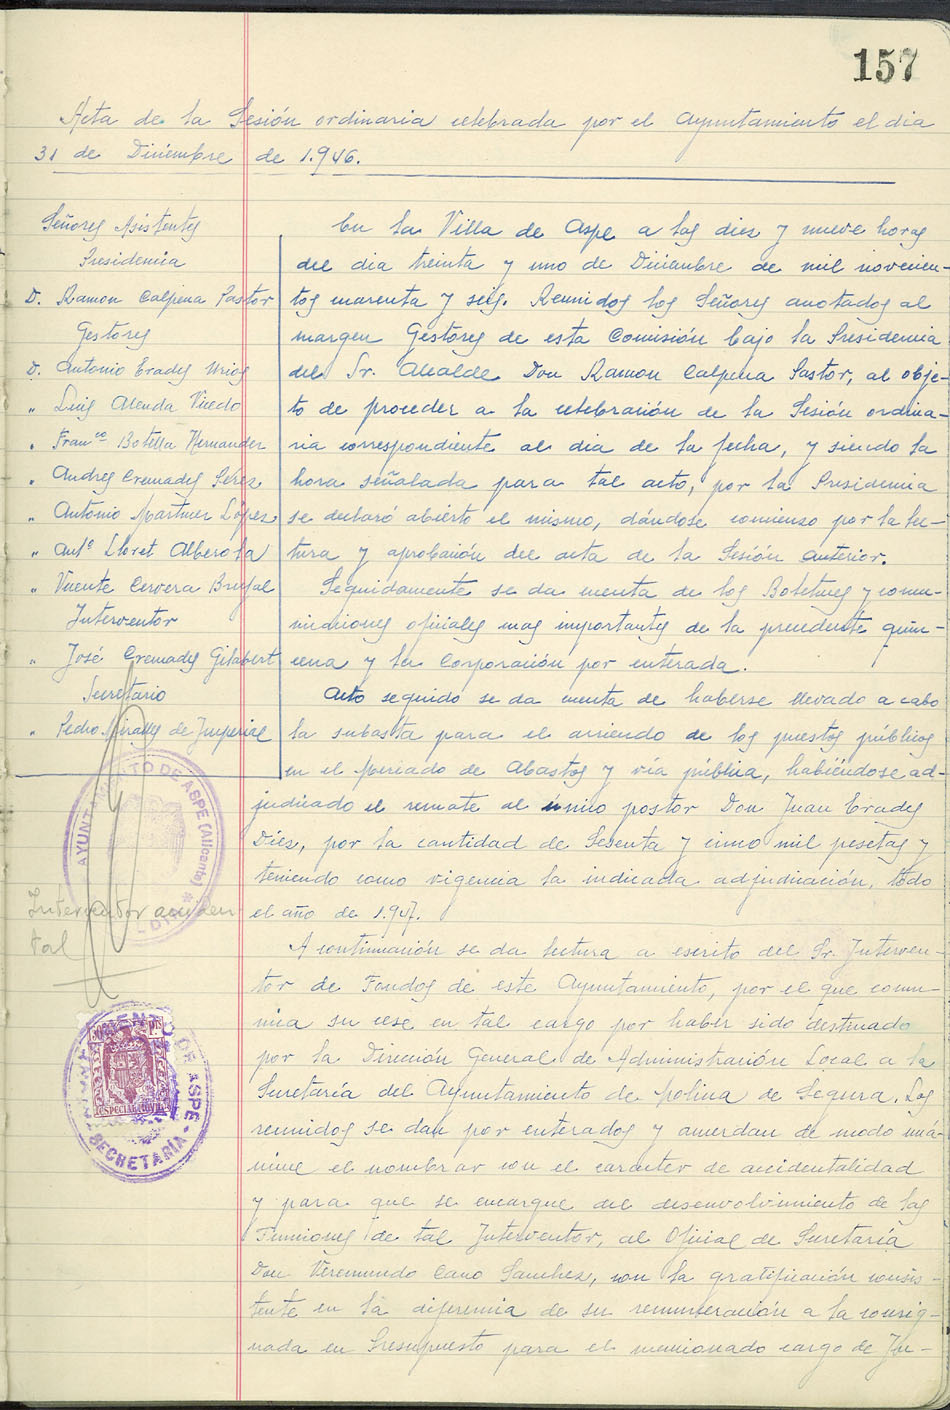 157
Acta de la Sesión ordinaria celebrada por el Ayuntamiento el dia
31 de Diciembre de 1.946.
Señores Asistentes
Presidencia
D. Ramon Calpena Pastor
Gestores
D. Antonio Erades Urios
" Luis Alenda Vicedo
" Franco Botella Hernandez
" Andres Cremades Perez
" Antonio Martinez López
" Antº Lloret Alberola
" Vicente Cervera Brufal
Interventor
" José Cremades Gilabert
Secretario
" Pedro Miralles de Imperial
AYUNTAMIENTO DE ASPE (Alicante)
Interventor acciden
tal
AYUNTAMIENTO DE ASPE
SECRETARÍA
PTS
ESPECIAL MOVIL
En la Villa de Aspe a las diez y nueve horas
del dia treinta y uno de Diciembre de mil novecien-
tos cuarenta y seis. Reunidos los Señores anotados al
margen Gestores de esta Comisión bajo la Presidencia
del Sr. Alcalde Don Ramon Calpena Pastor, al obje-
to de proceder a la celebración de la Sesión ordina-
ria correspondiente al dia de la fecha, y siendo la
hora señalada para tal acto, por la Presidencia
se declaró abierto el mismo, dándose comienzo por la lec-
tura y aprobación del acta de la Sesión anterior.
Seguidamente se da cuenta de los Boletines y comu-
nicaciones oficiales mas importantes de la precedente quin-
cena y la Corporación por enterada.
Acto seguido se da cuenta de haberse llevado a cabo
la subasta para el arriendo de los puestos públicos
en el Mercado de Abastos y via pública, habiéndose ad-
judicado el remate al único postor Don Juan Erades
Díez, por la cantidad de Sesenta y cinco mil pesetas y
teniendo como vigencia la indicada adjudicación, todo
el año de 1.947.
A continuación se da lectura a escrito del Sr. Interven-
tor de Fondos de este Ayuntamiento, por el que comu-
nica su cese en tal cargo por haber sido destinado
por la Dirección General de Administración Local a la
Secretaría del Ayuntamiento de Molina de Segura. Los
reunidos se dan por enterados y acuerdan de modo uná-
nime el nombrar con el caracter de accidentalidad
y para que se encargue del desenvolvimiento de las
Funciones de tal Interventor, al Oficial de Secretaría
Don Veremundo Cano Sanchez, con la gratificación consis-
tente en la diferencia de su remuneración a la consig-
nada en Presupuesto para el mencionado cargo de In-